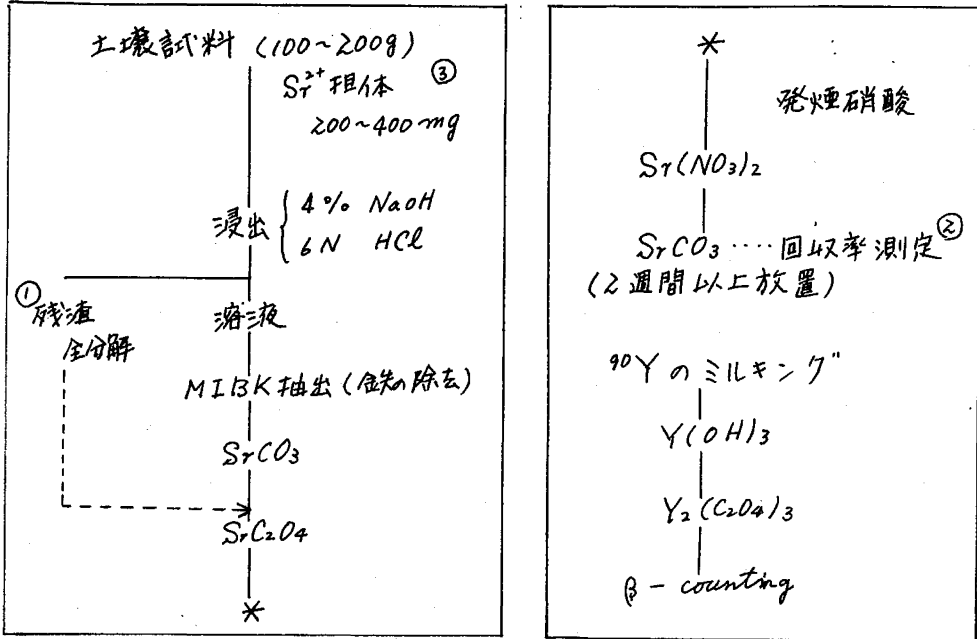 土壌試料 (100~200g)
Sr²⁺担体 ③
200~400mg
浸出 { 4% NaOH
6N HCl
① 残渣 溶液
全分解
MIBK抽出 (鉄の除去)
SrCO₃
SrC₂O₄
*
*
発煙硝酸
Sr(NO₃)₂
SrCO₃ ···· 回収率測定 ②
(2週間以上放置)
⁹⁰Yのミルキング
Y(OH)₃
Y₂(C₂O₄)₃
β - counting